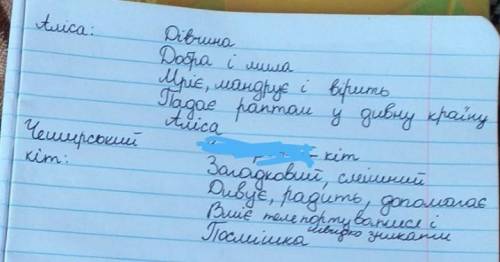 Аліса:
Дівчина
Добра і мила
Мріє, мандрує і вірить
Падає раптом у дивну країну
Аліса
Чеширський
кіт:
- кіт
Загадковий, смішний
Дивує, радить, допомагає
Вміє телепортуватися і
швидко зникати
Посмішка